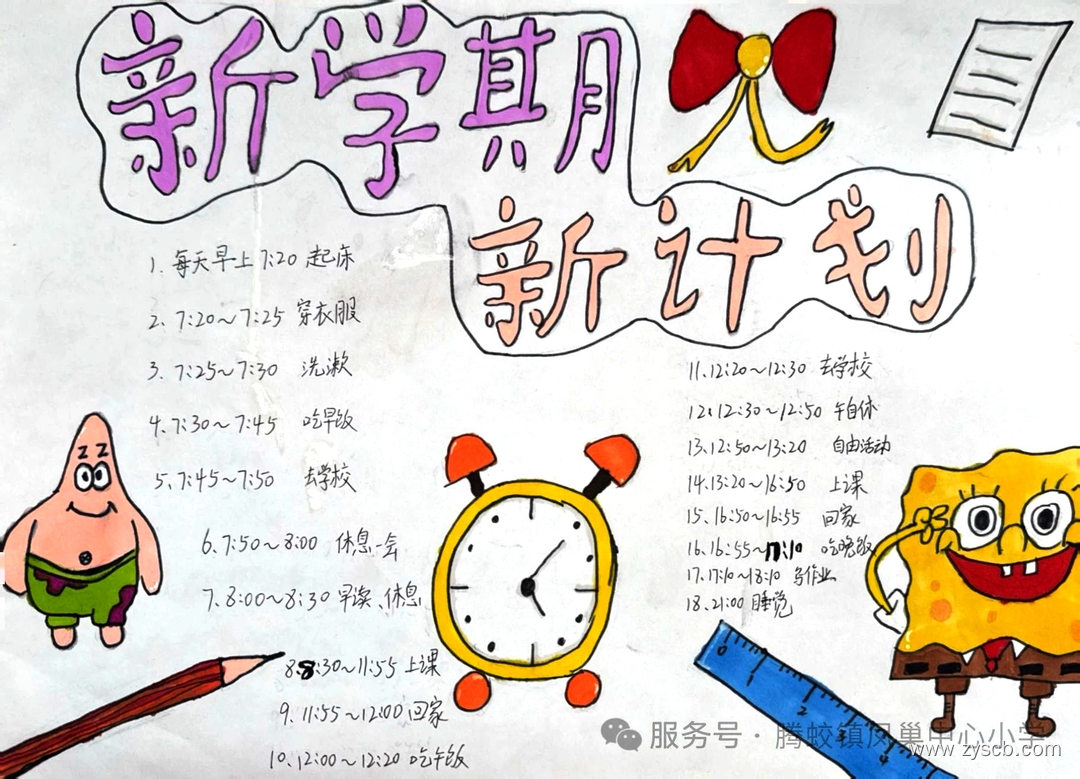 新学期
新计划
1. 每天早上 7:20 起床
2. 7:20~7:25 穿衣服
3. 7:25~7:30 洗漱
4. 7:30~7:45 吃早饭
5、7:45~7:50 去学校
6、7:50~8:00 休息一会
7、8:00~8:30 早读、休息
8.8:30~11:55 上课
9、11:55~12:00 回家
10、12:00~12:20 吃午饭
11、12:20~12:30 去学校
12、12:30~12:50 午自休
13、12:50~13:20 自由活动
14、13:20~16:50 上课
15、16:50~16:55 回家
16、16:55~17:10 吃晚饭
17、17:10~18:10 写作业
18、21:00 睡觉
ZZ
0 1 2 3 4
服务号 · 腾蛟镇凤巢中心小学
www.zyscb.com